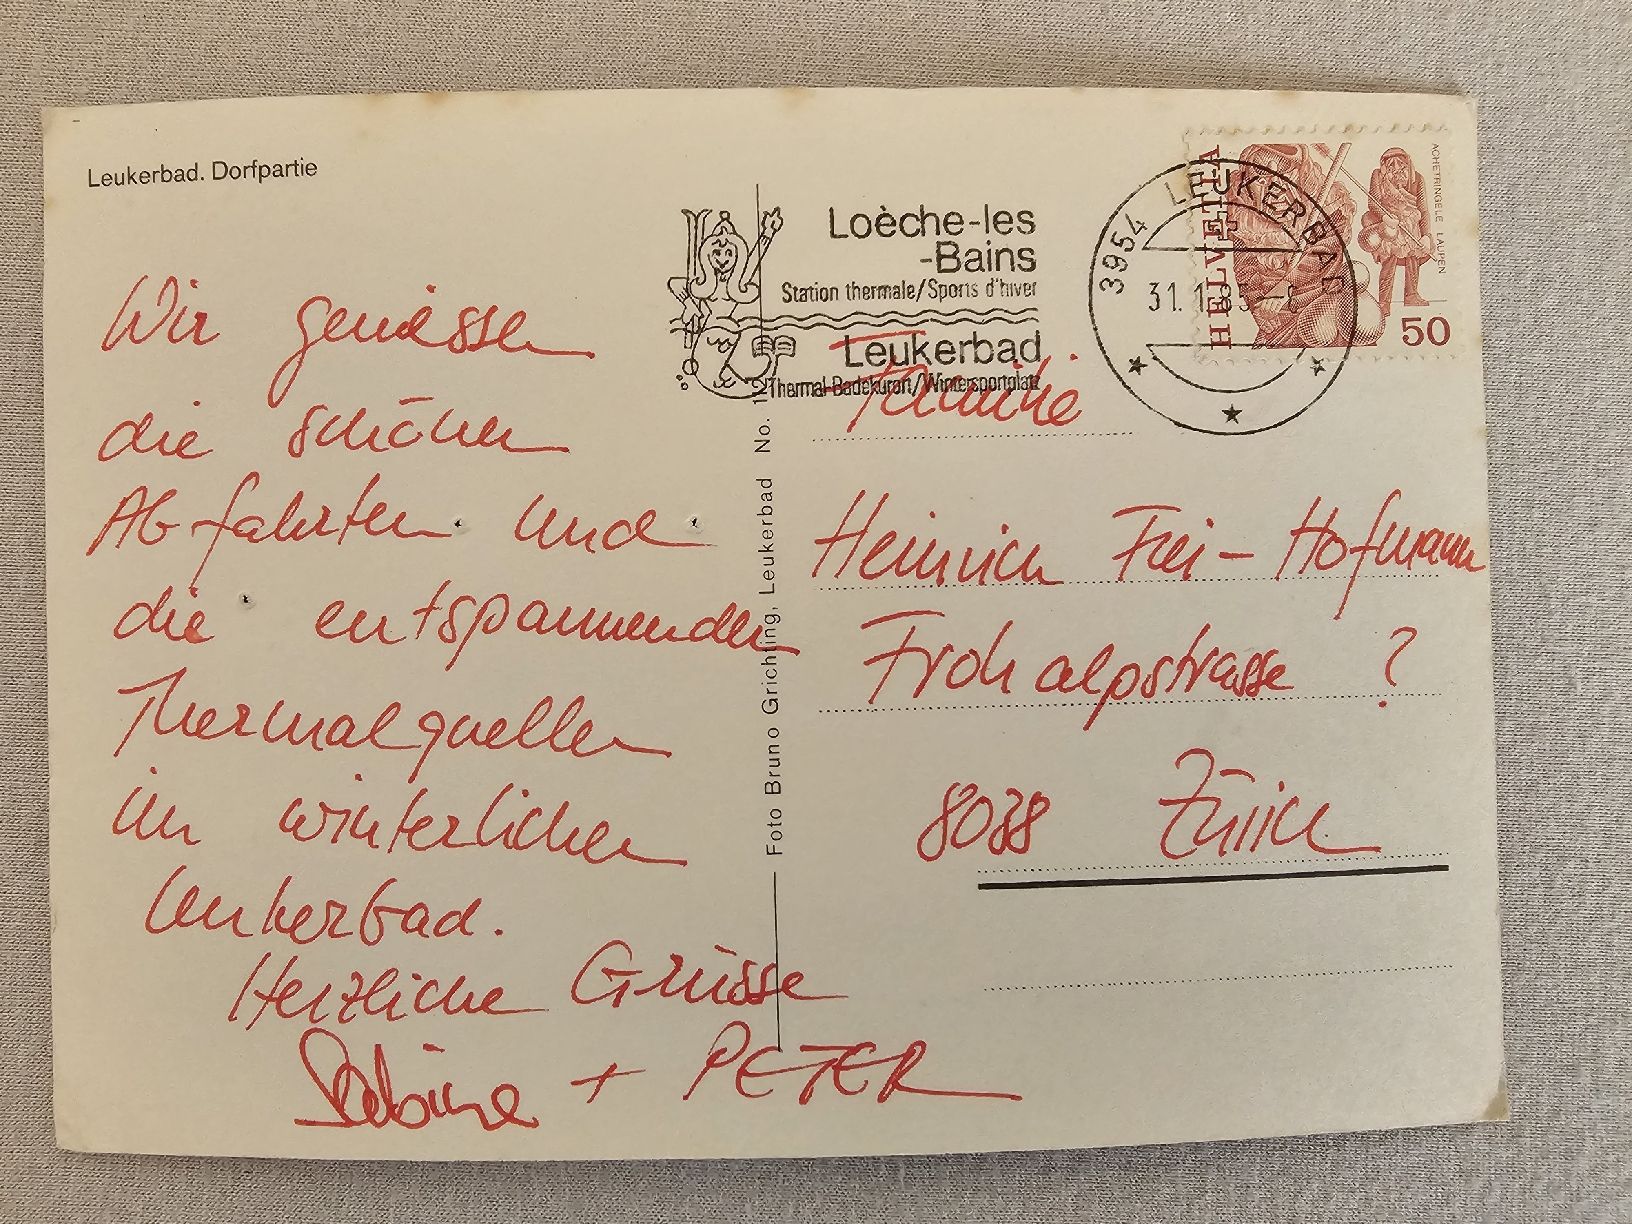 Leukerbad. Dorfpartie
Wir geniessen
die schönen
Abfahrten und
die entspannenden
Thermalquellen
im winterlichen
Leukerbad.
Herzliche Grüsse
Sabine + PETER
Foto Bruno Grichting, Leukerbad No. 112
Loèche-les
-Bains
Station thermale/Sports d'hiver
Leukerbad
Thermal-Badekurort/Wintersportplatz
3954 LEUKERBAD
31. 1. 85
HELVETIA
ACHETRINGELE LAUPEN
50
Familie
Heinrich Frei-Hofmann
Frohalpstrasse ?
8038 Zürich